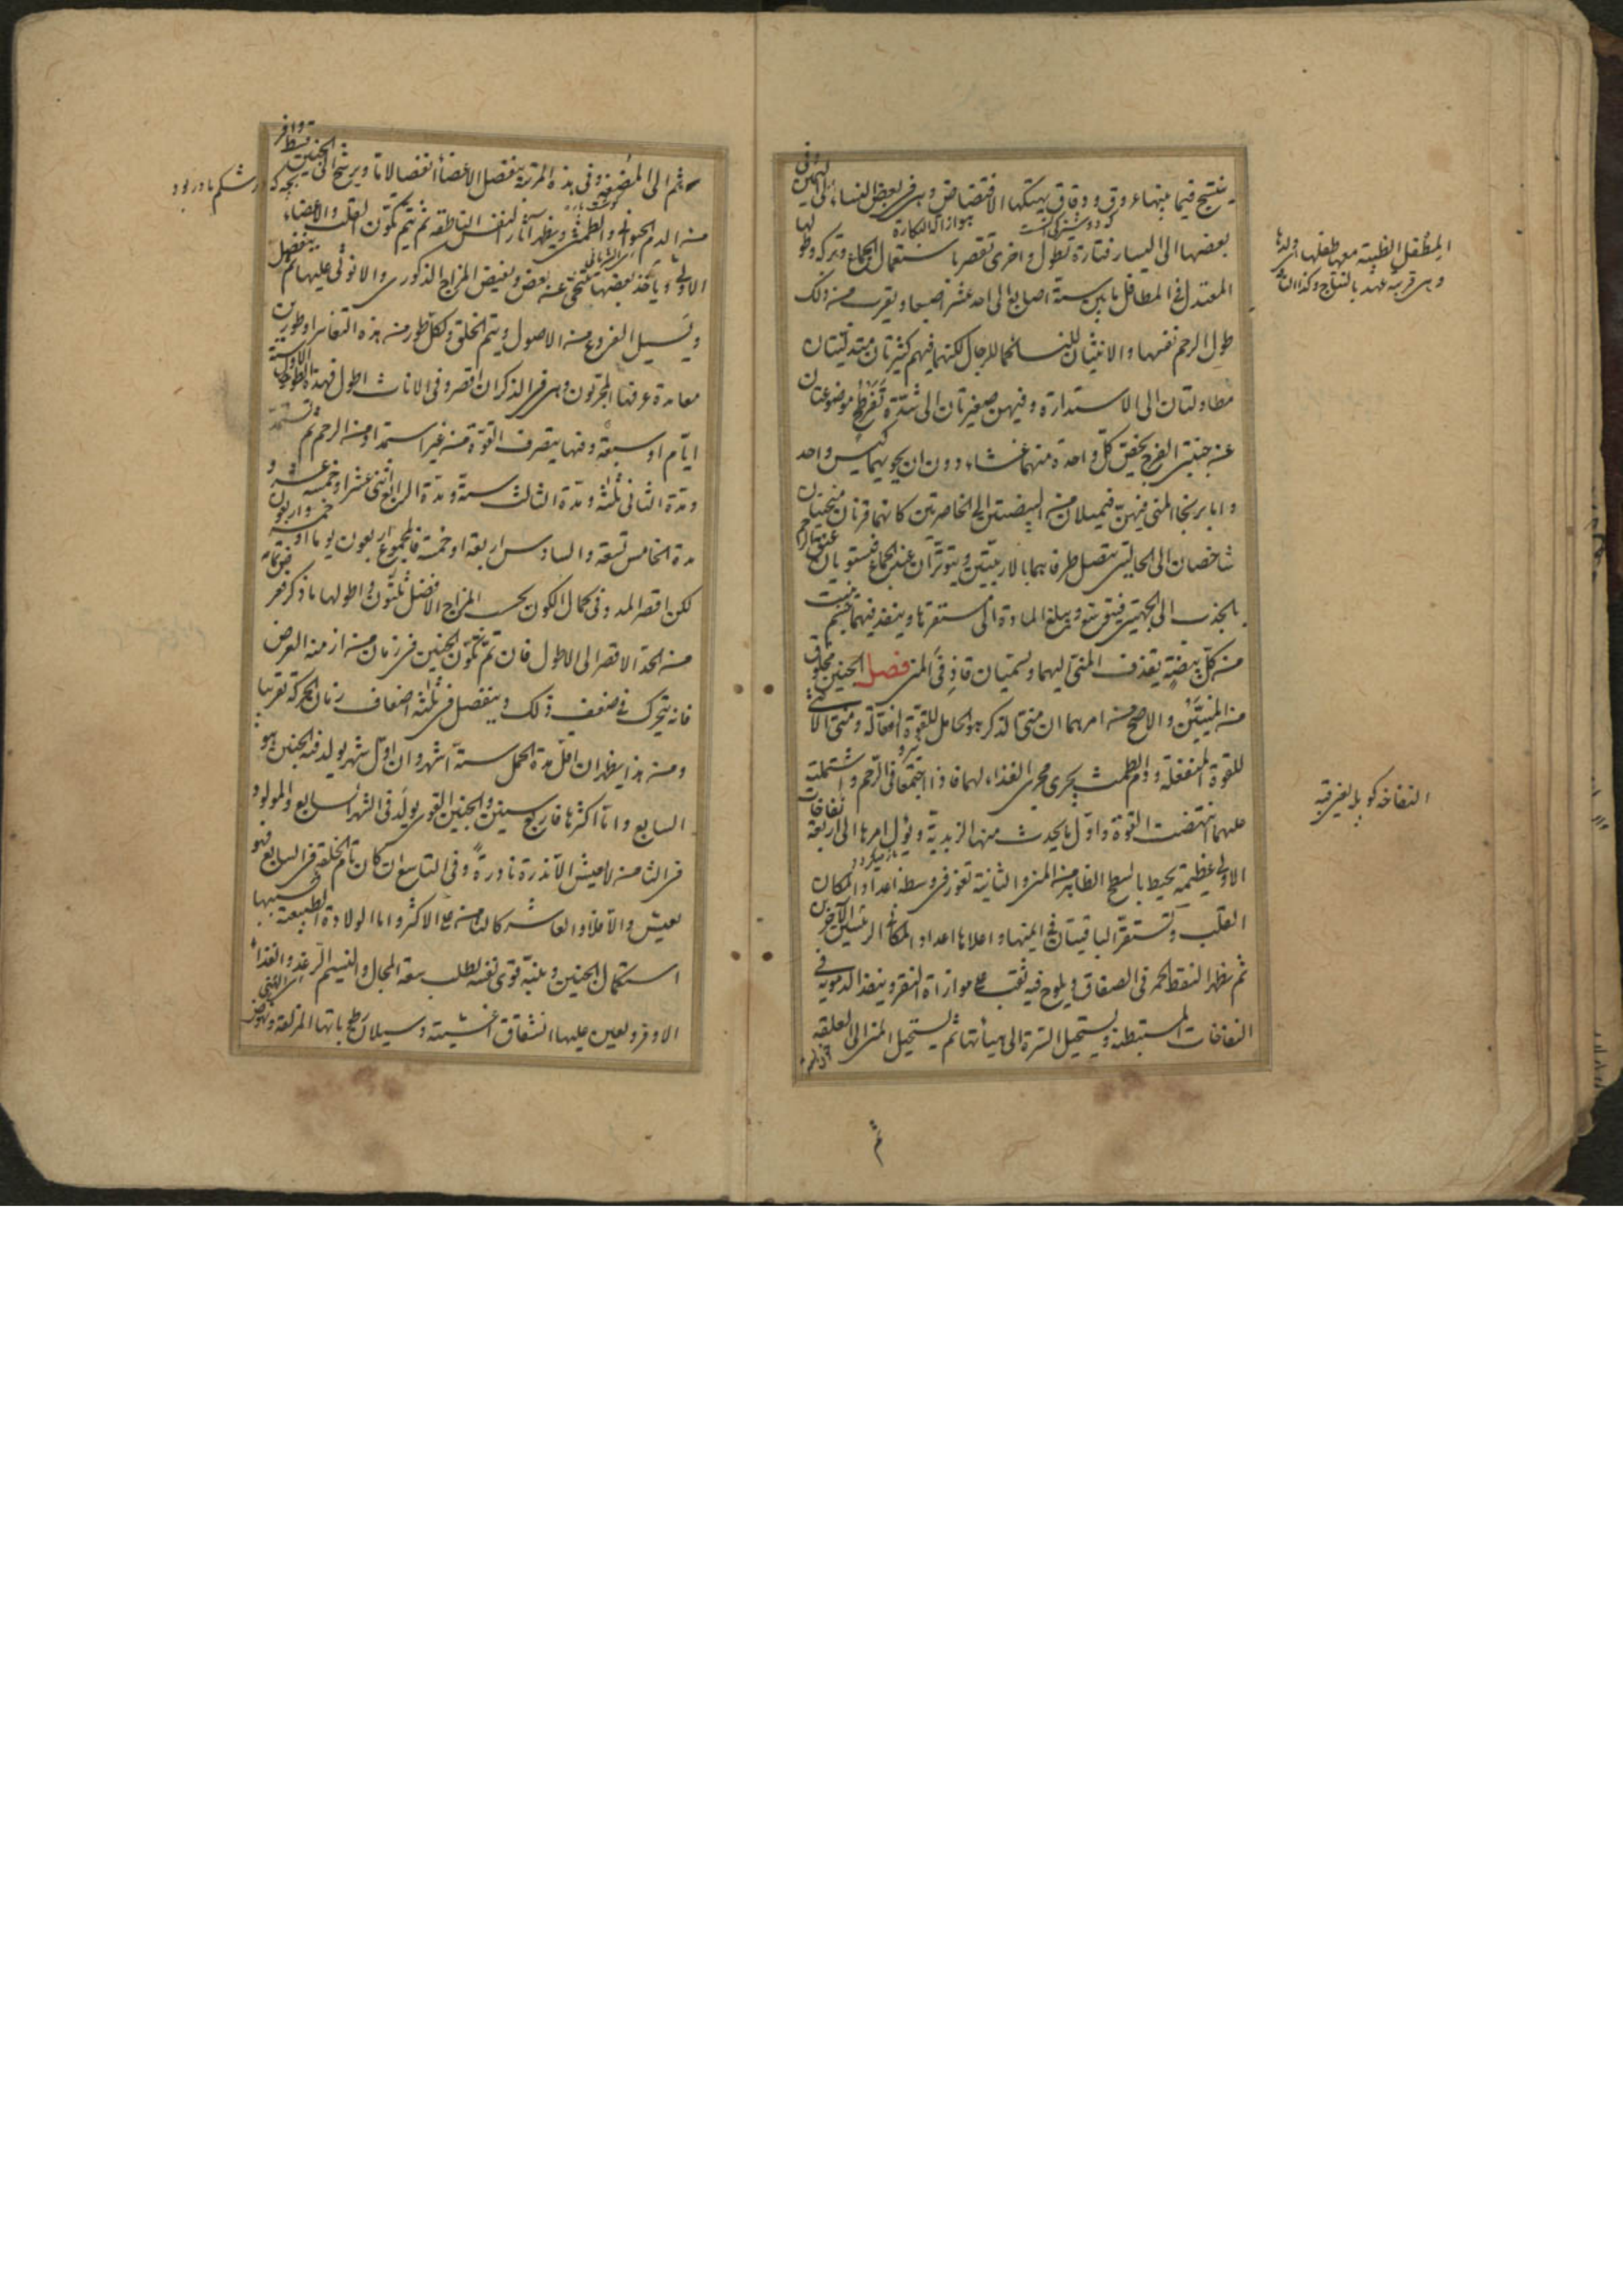 ينتسج فيما بينها عروق دقاق يهتكها الافتضاض وهى فى بعض النساء الى اليمين وفى
بعضها الى اليسار فتارة تطول واخرى تقصر باستعمال الجماع وتركه وطولها
المعتدل فى المطافل ما بين ستة اصابع الى احد عشر اصبعا ويقرب من ذلك
طول الرحم نفسها والانثيان للنساء كما للرجال لكنهما فيهم كبيرتان متدليتان
مطاولتان الى الاستدارة وفيهن صغيرتان الى شدة تفرطح موضوعتان
عن جنبتى الفرج يخص كل واحدة منهما غشاء دون ان يحويهما كيس واحد
واما بربخا المنى فيهن فيميلان من البيضتين الى الخاصرتين كانهما قرنان منحنيان
شاخصان الى الحالبتين يتصل طرفاهما بالاربيتين ويتوتران عند الجماع فيستويان عنق الرحم
بالجذب الى الجهتين فيتوسع ويبلغ المادة الى مستقرها وينفذ فيهما جسم ينبت
من كل بيضة يقذف المنى اليهما ويسميان قاذفى المنى فصل الجنين مخلوق
من المنيين والاصح من امرهما ان منى الذكر هو الحامل للقوة الفعالة ومنى الانثى
للقوة المنفعلة ودم الطمث يجرى مجرى الغذاء لهما فاذا اجتمعا فى الرحم واشتملت
عليهما انتهضت القوة واول ما يحدث منها الزبدية ويؤل امرها الى اربعة نفاخات
الاولى عظيمة يحيط بالسطح الظاهر من المنى والثانية تغور فى وسطه اعداد المكان
القلب وتستقر الباقيتان فى ايمنها واعلاها اعداد المكان الرئيسين الآخرين
ثم يظهر النقط الحمر فى الصفاق ويلوح فيه ثقب على موازاة النقر وينفذ الدموية فى
النفاخات المستبطنة ويستحيل السرة الى هيأتها ثم يستحيل المنى الى العلقة
ثم
المطفل الظبية معها طفلها اى ولدها
وهى قريبة عهد بالنتاج وكذا الناقة
النفاخه كوپله يعنى قبه
ثم الى المضغة وفى هذه المرتبة ينفصل الاعضاء انفصالا ما ويرشح الى الجنين قسط وافر
من الدم الحيوانى والطمثى ويظهر آثار النفس الناطقة ثم يتم تكون القلب والاعضاء
الاولى ويأخذ بعضها يتنحى عن بعض ويفيض المزاج الذكورى والانوثى عليها ثم ينفصل
ويسيل الفروع من الاصول ويتم الخلق ولكل طور من هذه التغاير او طورين
معا مدة عرفها المجربون وهى فى الذكران اقصر وفى الاناث اطول فمدة الطور الاول ستة
ايام او سبعة وفيها يتصرف القوة من غير استمداد من الرحم ثم تستمد
ومدة الثانى ثلثة ومدة الثالث ستة ومدة الرابع اثنى عشر او خمسة عشر و
مدة الخامس تسعة والسادس اربعة او خمسة فالمجموع اربعون يوما او خمسة واربعون
لكن اقصر المدد فى كمال الكون بحسب المزاج الافضل ثلثون واطولها ما ذكر
من الحد الاقصر الى الاطول فان تم تكون الجنين فى زمان من ازمنة العرض
فانه يتحرك فى ضعف ذلك وينفصل فى ثلثة اضعاف زمان الحركة تقريبا
ومن هذا يظهر ان اقل مدة الحمل ستة اشهر وان اول شهر يولد فيه الجنين هو
السابع واما اكثرها فاربع سنين والجنين القوى يولد فى الشهر السابع والمولود
فى الثامن لا يعيش الا ندرة نادرة وفى التاسع ان كان تام الخلقة فى السابع فهو
يعيش والا فلا والعاشر كالثامن على الاكثر واما الولادة الطبيعية فسببها
استكمال الجنين وتنبه قوى نفسه لطلب سعة المجال والنسيم الرغد والغذاء
الاوفر ويعين عليها انشقاق اغشيته وسيلان رطوباتها المزلقة
بچه كه در شكم مادر بود